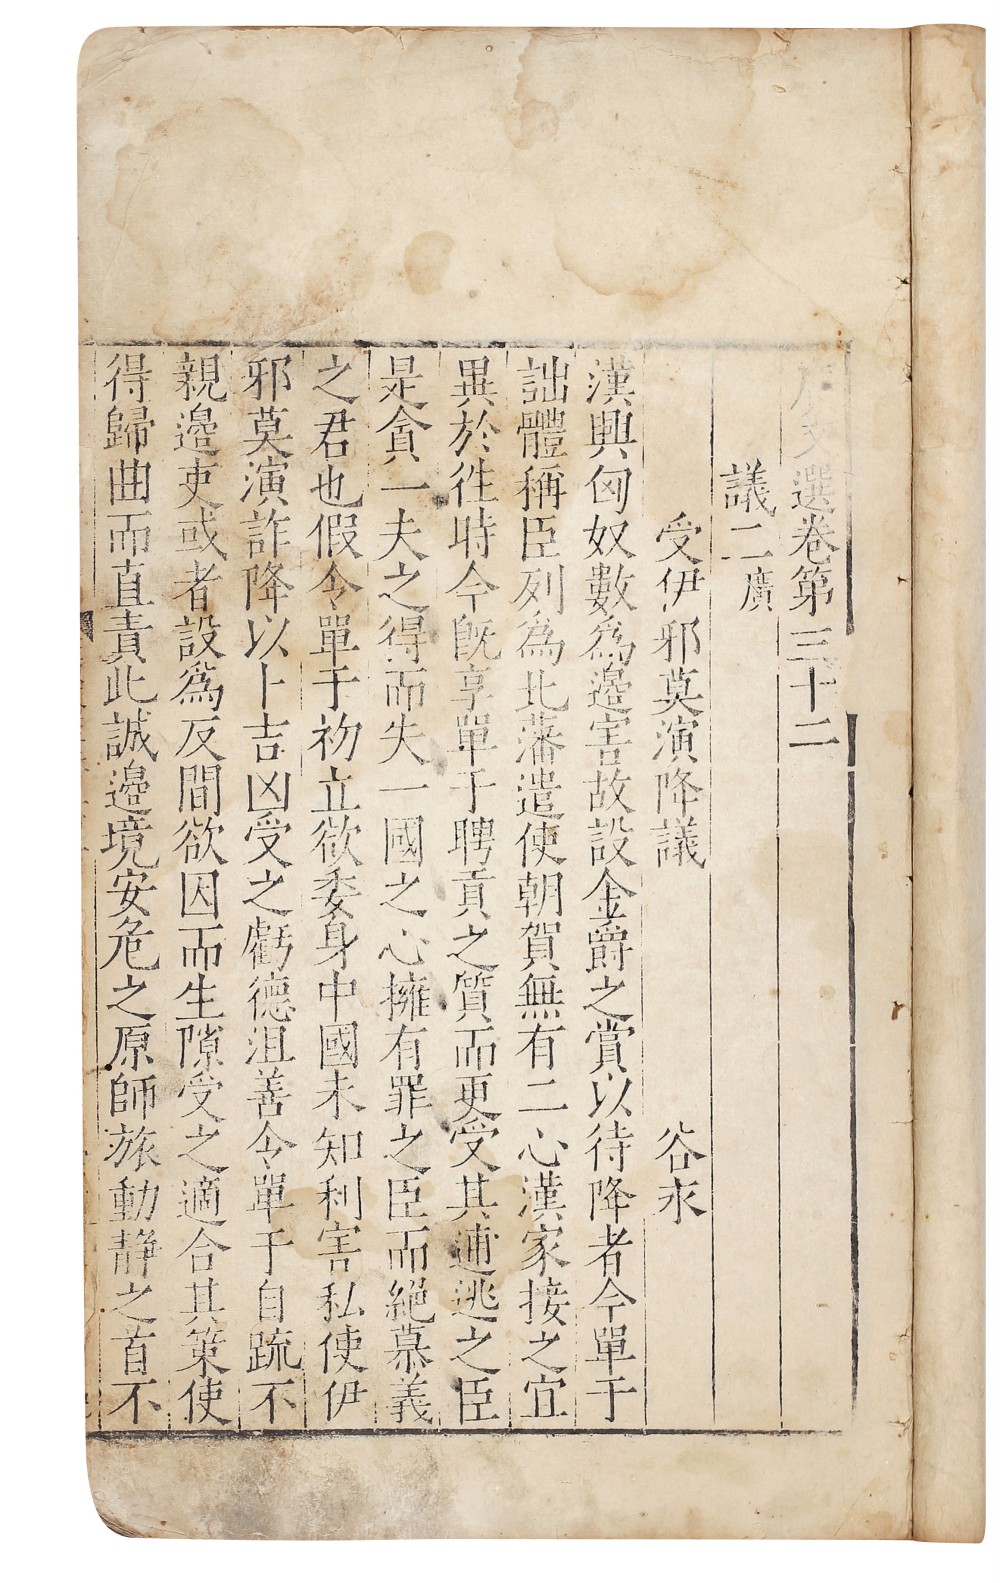 廣文選卷第三十二
議二廣
受伊邪莫演降議 谷永
漢興匈奴數為邊害故設金爵之賞以待降者今單于
詘體稱臣列為北藩遣使朝賀無有二心漢家接之宜
異於徃時今旣享單于聘貢之質而更受其逋逃之臣
是貪一夫之得而失一國之心擁有罪之臣而絕慕義
之君也假令單于初立欲委身中國未知利害私使伊
邪莫演詐降以卜吉凶受之虧德沮善令單于自䟽不
親邊吏或者設為反間欲因而生隙受之適合其策使
得歸曲而直責此誠邊境安危之原師旅動靜之首不